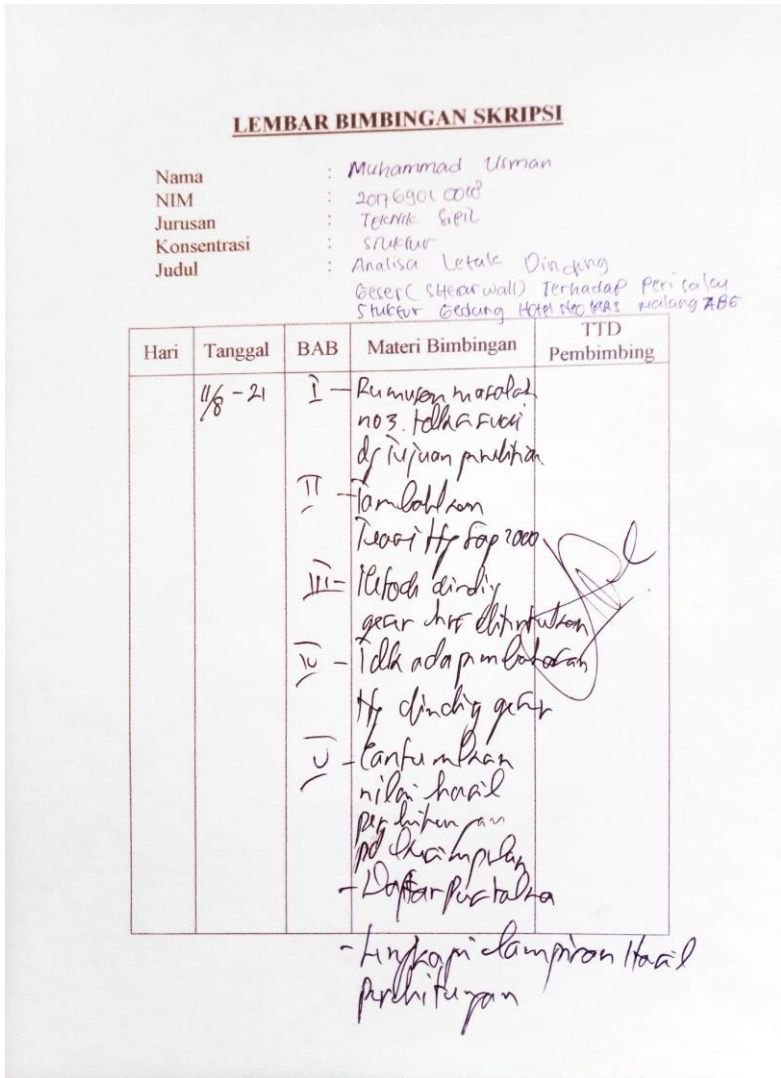 LEMBAR BIMBINGAN SKRIPSI
Nama : Muhammad Usman
NIM : 2017690100
Jurusan : Teknik Sipil
Konsentrasi : Struktur
Judul : Analisa Letak Dinding
Geser (Shear wall) Terhadap
Gedung Hotel Malang
Hari Tanggal BAB Materi Bimbingan TTD Pembimbing
11/8-21 I - Rumusan masalah
no 3. tdk sesuai
dg Tujuan penelitian
II - Tambahkan
Teori ttg Sap 2000
III - Metode dinding
geser hrs ditentukan
IV - Tdk ada pembahasan
ttg dinding geser
V - Cantumkan
nilai hasil
perhitungan
pd kesimpulan
- Daftar Pustaka
- Lengkapi lampiran Hasil
perhitungan